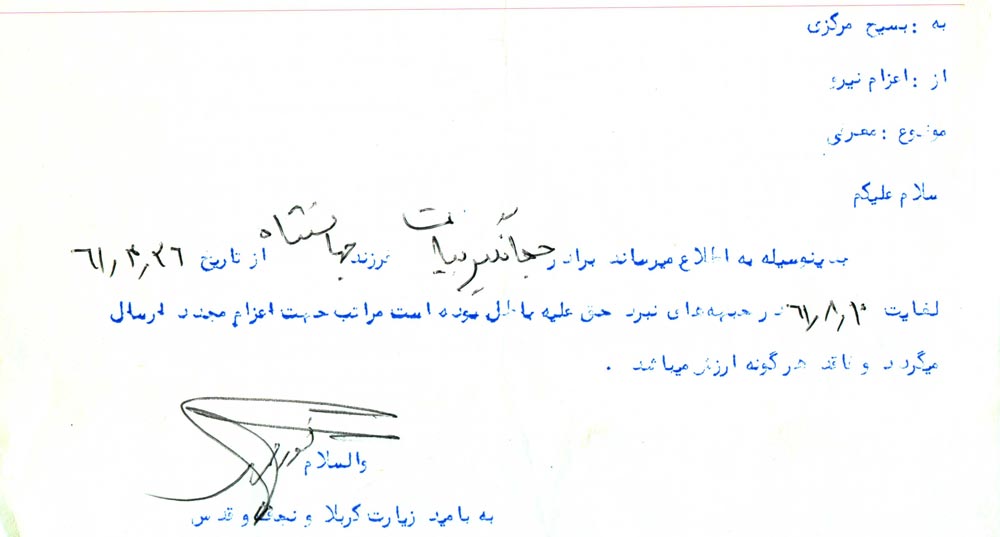 به : بسیج مرکزی
از : اعزام نیرو
موضوع : معرفی
سلام علیکم
بدینوسیله به اطلاع میرساند برادر جهانگیر بیات فرزند جهانشاه از تاریخ ۶۱٫۴٫۲۶
لغایت ۶۱٫۸٫۲۰ در جبهه‌های نبرد حق علیه باطل بوده است مراتب جهت اعزام مجدد ارسال
میگردد و فاقد هر گونه ارزش میباشد .
والسلام
به بامید زیارت کربلا و نجف و قدس